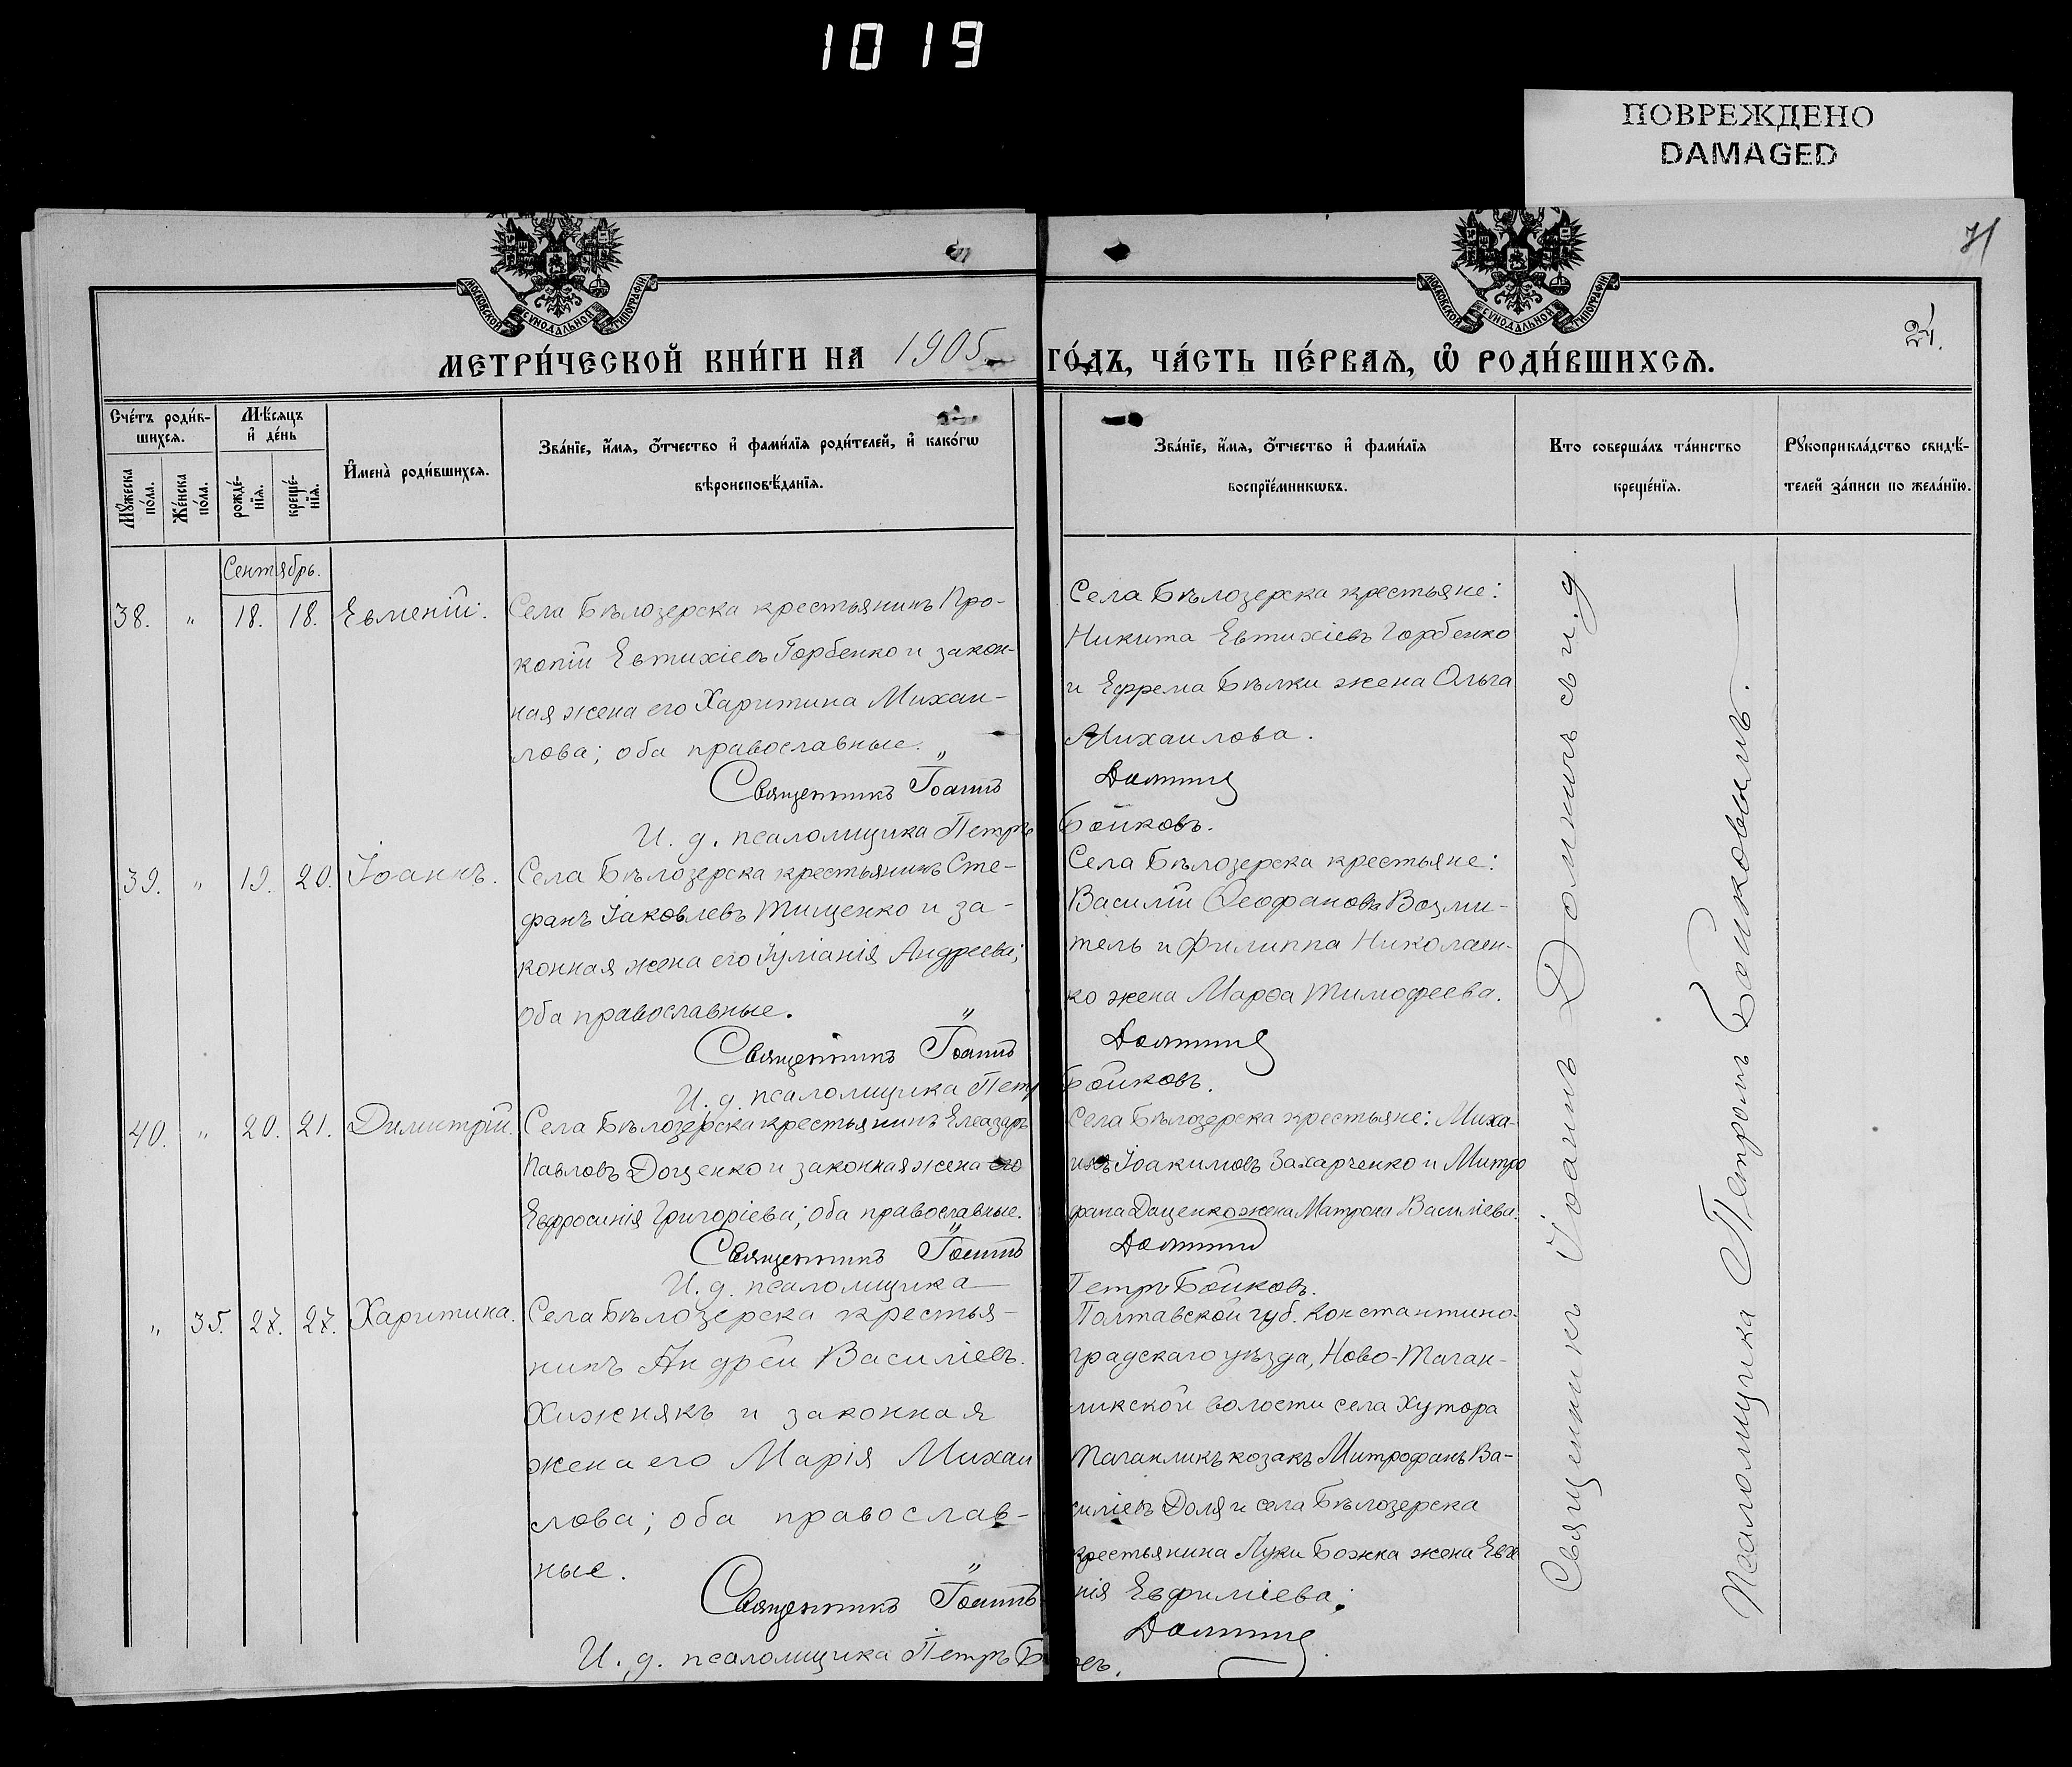 1019
ПОВРЕЖДЕНО
DAMAGED
71
24.
МОСКОВСКОЙ СѴНОДАЛЬНОЙ ТИПОГРАФІИ
МОСКОВСКОЙ СѴНОДАЛЬНОЙ ТИПОГРАФІИ
МЕТРИ́ЧЕСКОЙ КНИ́ГИ НА 1905
ГО́ДЪ, ЧА́СТЬ ПЕ́РВАЯ, Ѡ҆ РОДИ́ВШИХСЯ.
Сче́тъ роди́в-
шихся.
Мѣ́сяцъ
и҆ де́нь
Мꙋ́жеска
по́ла.
Же́нска
по́ла.
рожде́-
нїя.
креще́-
нїя.
И҆мена̀ роди́вшихся.
Зва́нїе, и҆́мя, ѻ҆́тчество и҆ фами́лїя роди́телей, и҆ како́гѡ
вѣроисповѣ́данїя.
Зва́нїе, и҆́мя, ѻ҆́тчество и҆ фами́лїя
воспрїе́мникѡвъ.
Кто соверша́лъ та́инство
креще́нїя.
Рꙋкоприкла́дство свидѣ́-
телей за́писи по жела́нїю.
Сентябрь.
38. " 18. 18. Евменій.
Села Бѣлозерска крестьянинъ Про-
копій Евтихіевъ Горбенко и закон-
ная жена его Харитина Михаи-
лова; оба православные. "
Священникъ Іоаннъ
И. д. псаломщика Петръ
Села Бѣлозерска крестьяне:
Никита Евтихіевъ Горбенко
и Ефрема Бѣлки жена Ольга
Михаилова.
Доминъ
Бойковъ.
39. " 19. 20. Іоаннъ.
Села Бѣлозерска крестьянинъ Сте-
фанъ Іаковлевъ Тищенко и за-
конная жена его Іуліанія Андреева;
оба православные. "
Священникъ Іоаннъ
И. д. псаломщика Петр
Села Бѣлозерска крестьяне:
Василій Ѳеофановъ Возми-
тель и Филиппа Николаен-
ко жена Марѳа Тимофеева.
Доминъ
Бойковъ.
40. " 20. 21. Димитрій.
Села Бѣлозерска крестьянинъ Елеазаръ
Павловъ Доценко и законная жена его
Евфросинія Григоріева; оба православные.
Священникъ Іоаннъ
И. д. псаломщика
Села Бѣлозерска крестьяне: Миха-
илъ Іоакимовъ Захарченко и Митро
фана Даценко жена Матрона Василіева.
Доминъ
Петръ Бойковъ.
" 35. 27. 27. Харитина.
Села Бѣлозерска крестья-
нинъ Андрей Василіевъ
Хижнякъ и законная
жена его Марія Михаи
лова; оба православ-
ные. "
Священникъ Іоаннъ
И. д. псаломщика Петръ Б
Полтавской губ. Константино-
градскаго уѣзда, Ново-Таган-
ликской волости села Хутора
Таганликъ козакъ Митрофанъ Ва-
силіевъ Доля и села Бѣлозерска
крестьянина Луки Божка жена Евге
нія Евфиміева.
Доминъ
въ.
Священникъ Іоаннъ Доминъ съ и. д.
Псаломщика Петромъ Бойковымъ.